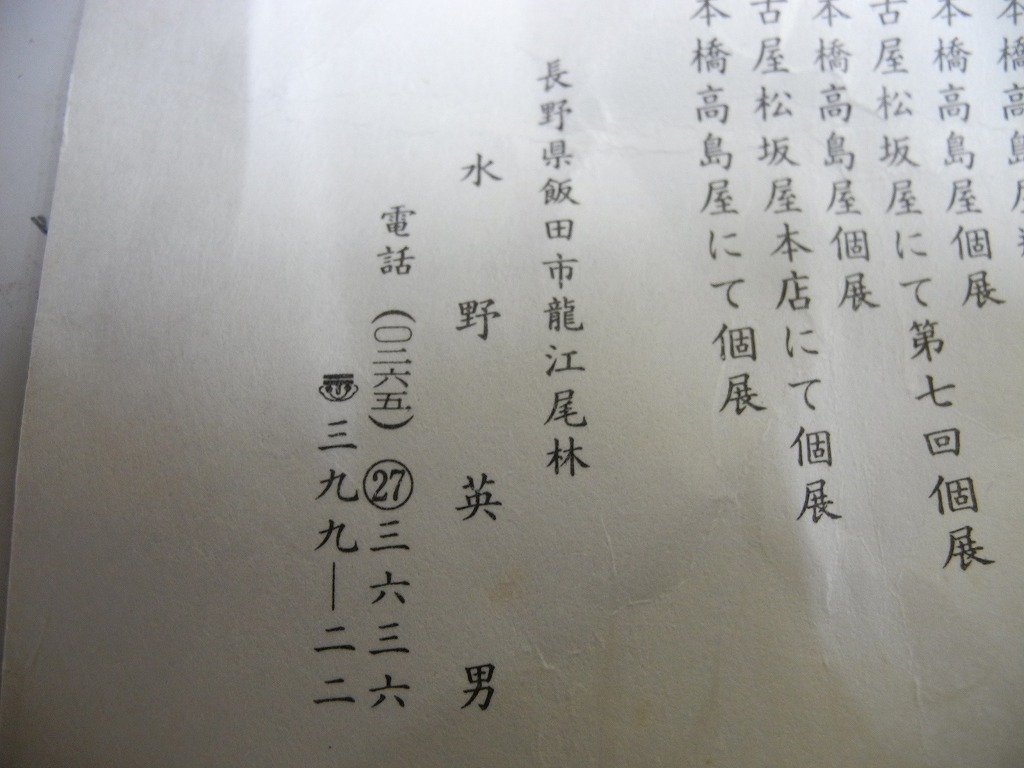 本橋高島屋
本橋高島屋個展
古屋松坂屋にて第七回個展
本橋高島屋個展
古屋松坂屋本店にて個展
本橋高島屋にて個展
長野県飯田市龍江尾林
水野英男
電話(〇二六五)㉗三六三六
三九九―二二